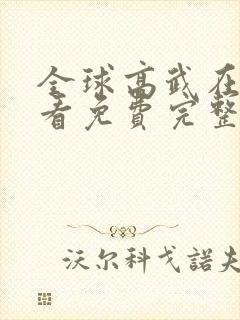 全球高武在
看免费完整
沃尔科戈諾夫